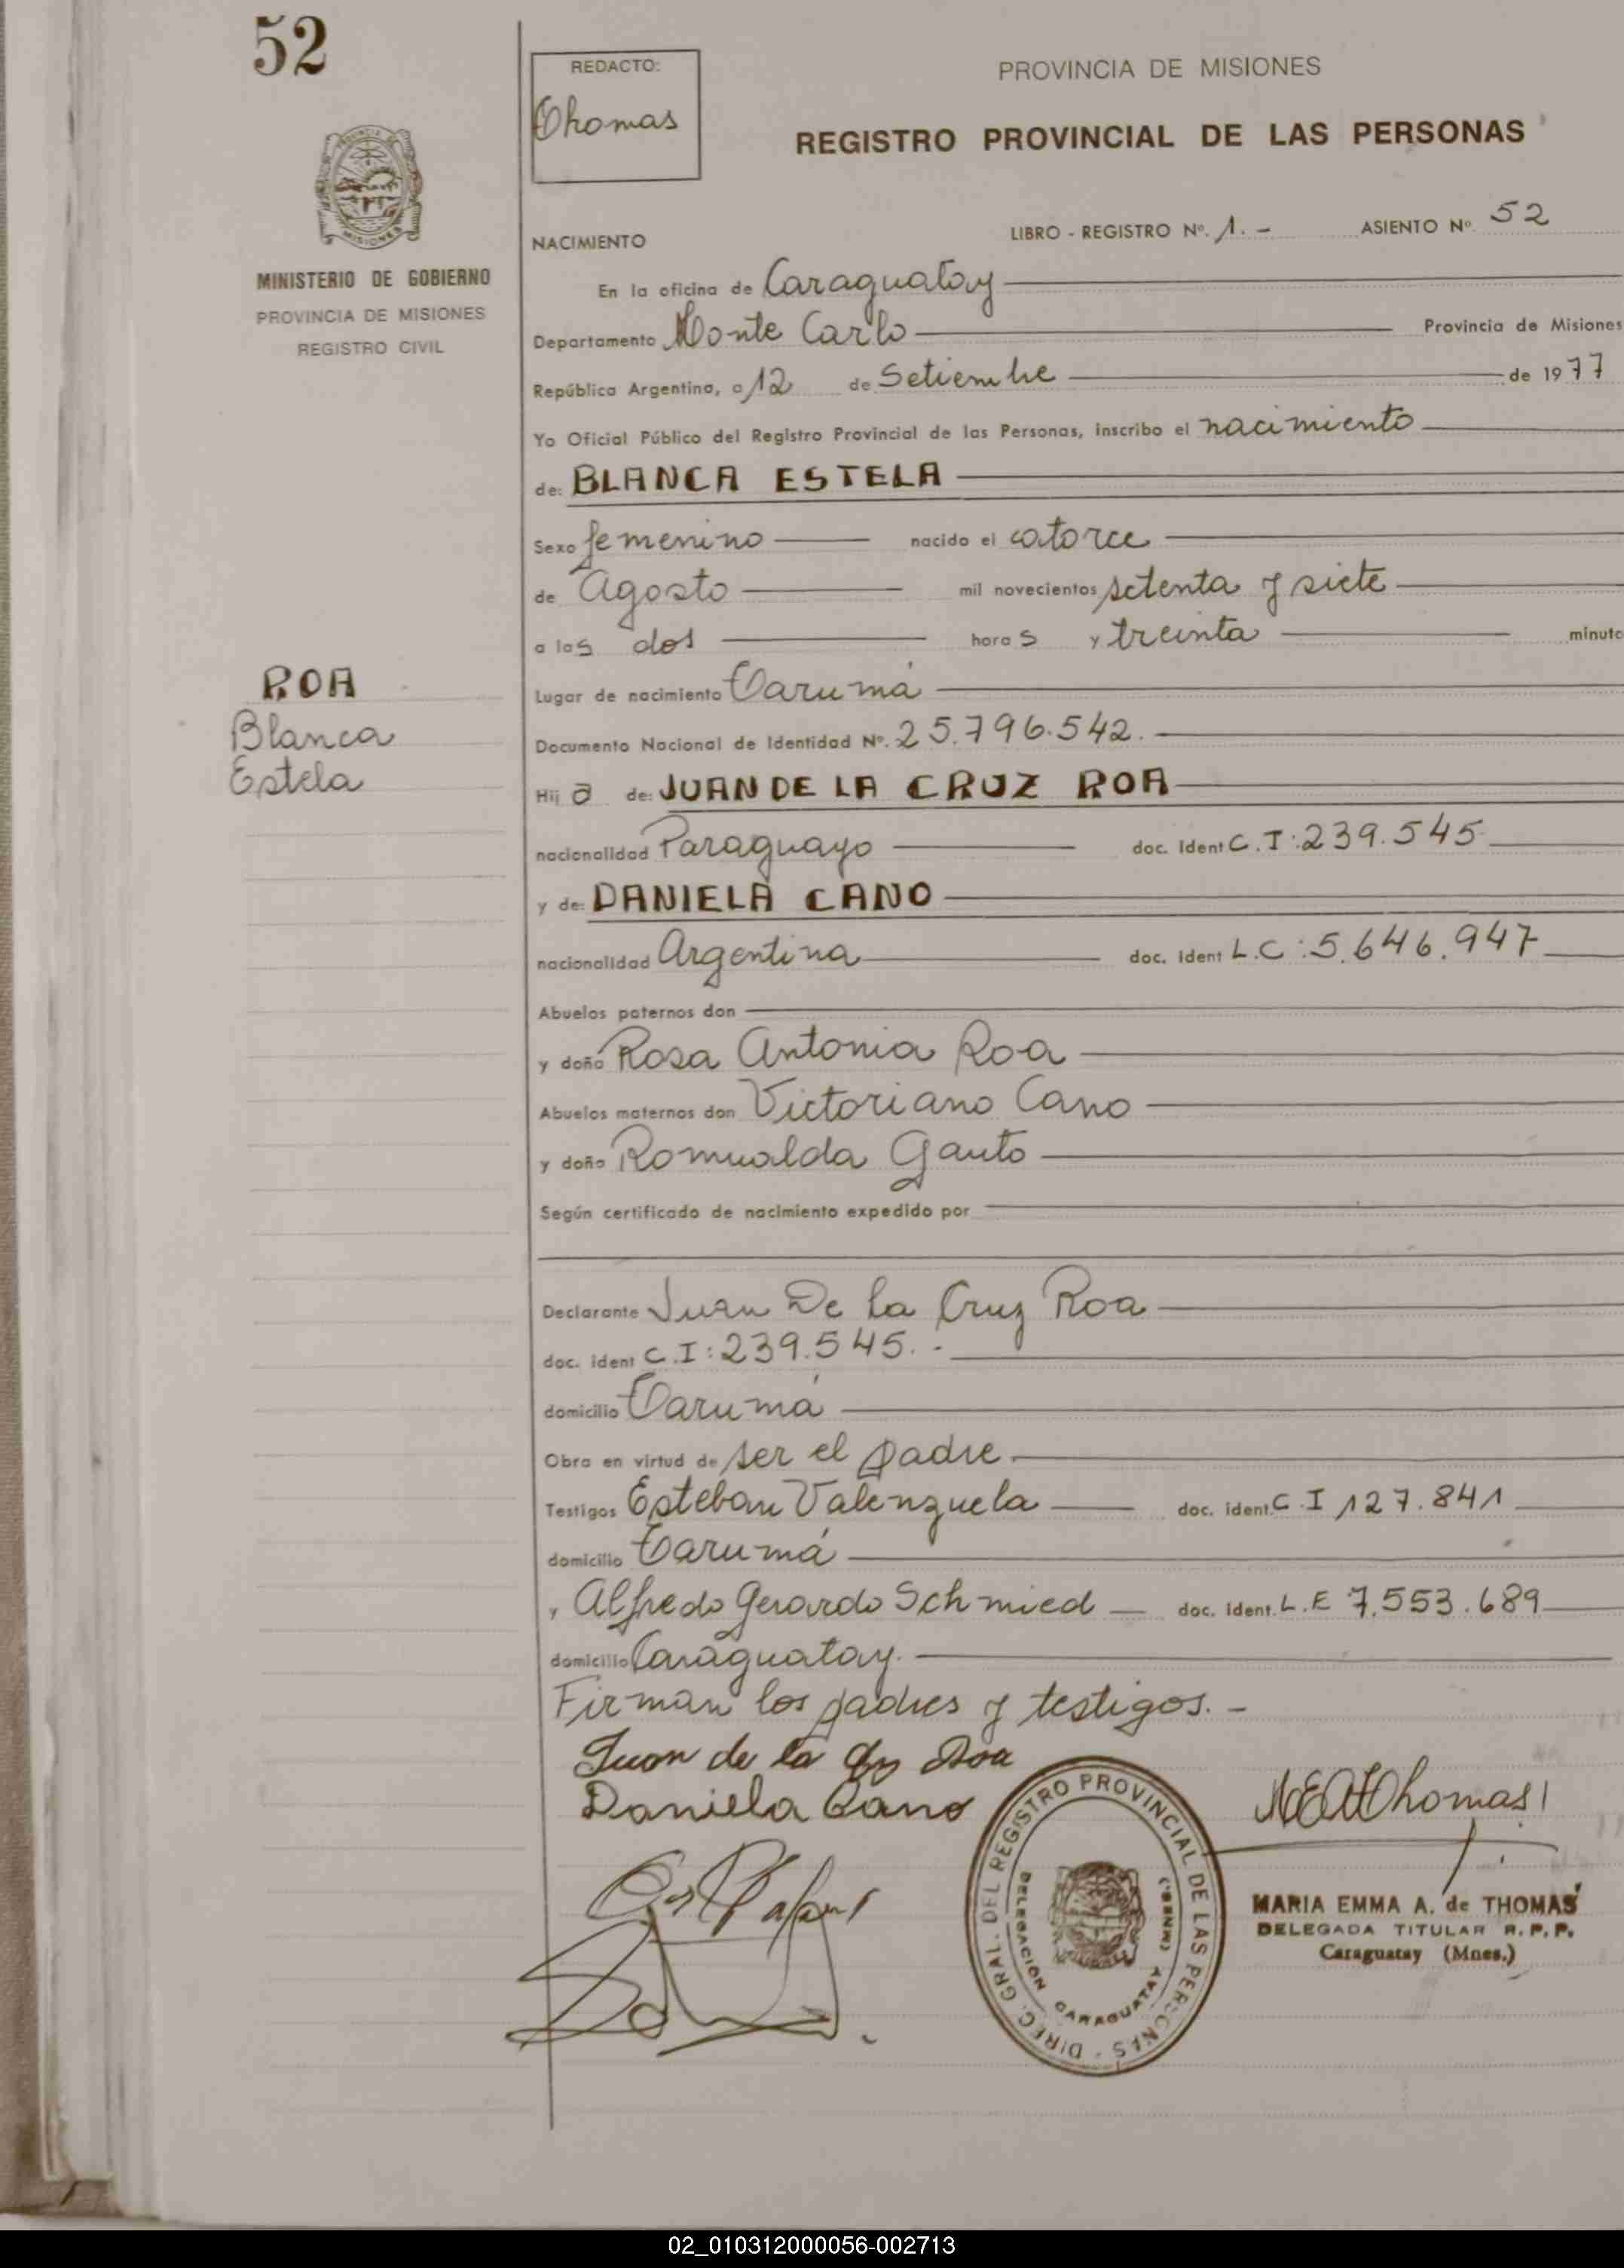 52
REDACTO:
Thomas
PROVINCIA DE MISIONES
REGISTRO PROVINCIAL DE LAS PERSONAS
MISIONES
MINISTERIO DE GOBIERNO
PROVINCIA DE MISIONES
REGISTRO CIVIL
NACIMIENTO
LIBRO - REGISTRO Nº. 1. - ASIENTO Nº 52
En la oficina de Caraguatay
Departamento Monte Carlo Provincia de Misiones
República Argentina, a 12 de Setiembre de 1977
Yo Oficial Público del Registro Provincial de las Personas, inscribo el nacimiento
de: BLANCA ESTELA
Sexo femenino nacido el catorce
de Agosto mil novecientos setenta y siete
a las dos horas y treinta minuto
ROA
Blanca
Estela
Lugar de nacimiento Tarumá
Documento Nacional de Identidad Nº. 25.796.542.
Hija de: JUAN DE LA CRUZ ROA
nacionalidad Paraguayo doc. Ident C.I: 239.545
y de: DANIELA CANO
nacionalidad Argentina doc. ident L.C: 5.646.947
Abuelos paternos don
y doña Rosa Antonia Roa
Abuelos maternos don Victoriano Cano
y doña Romualda Gauto
Según certificado de nacimiento expedido por
Declarante Juan De La Cruz Roa
doc. ident C.I: 239.545. -
domicilio Tarumá
Obra en virtud de ser el padre
Testigos Esteban Valenzuela doc. ident. C.I 127.841
domicilio Tarumá
y Alfredo Gerardo Schmied doc. ident. L.E 7.553.689
domicilio Caraguatay.
Firman los padres y testigos. -
Juan de la Roa
Daniela Cano
Thomas
DIREC. GRAL. DEL REGISTRO PROVINCIAL DE LAS PERSONAS
DELEGACION CARAGUATAY (MNES.)
MARIA EMMA A. de THOMAS
DELEGADA TITULAR R.P.P.
Caraguatay (Mnes.)
02_010312000056-002713